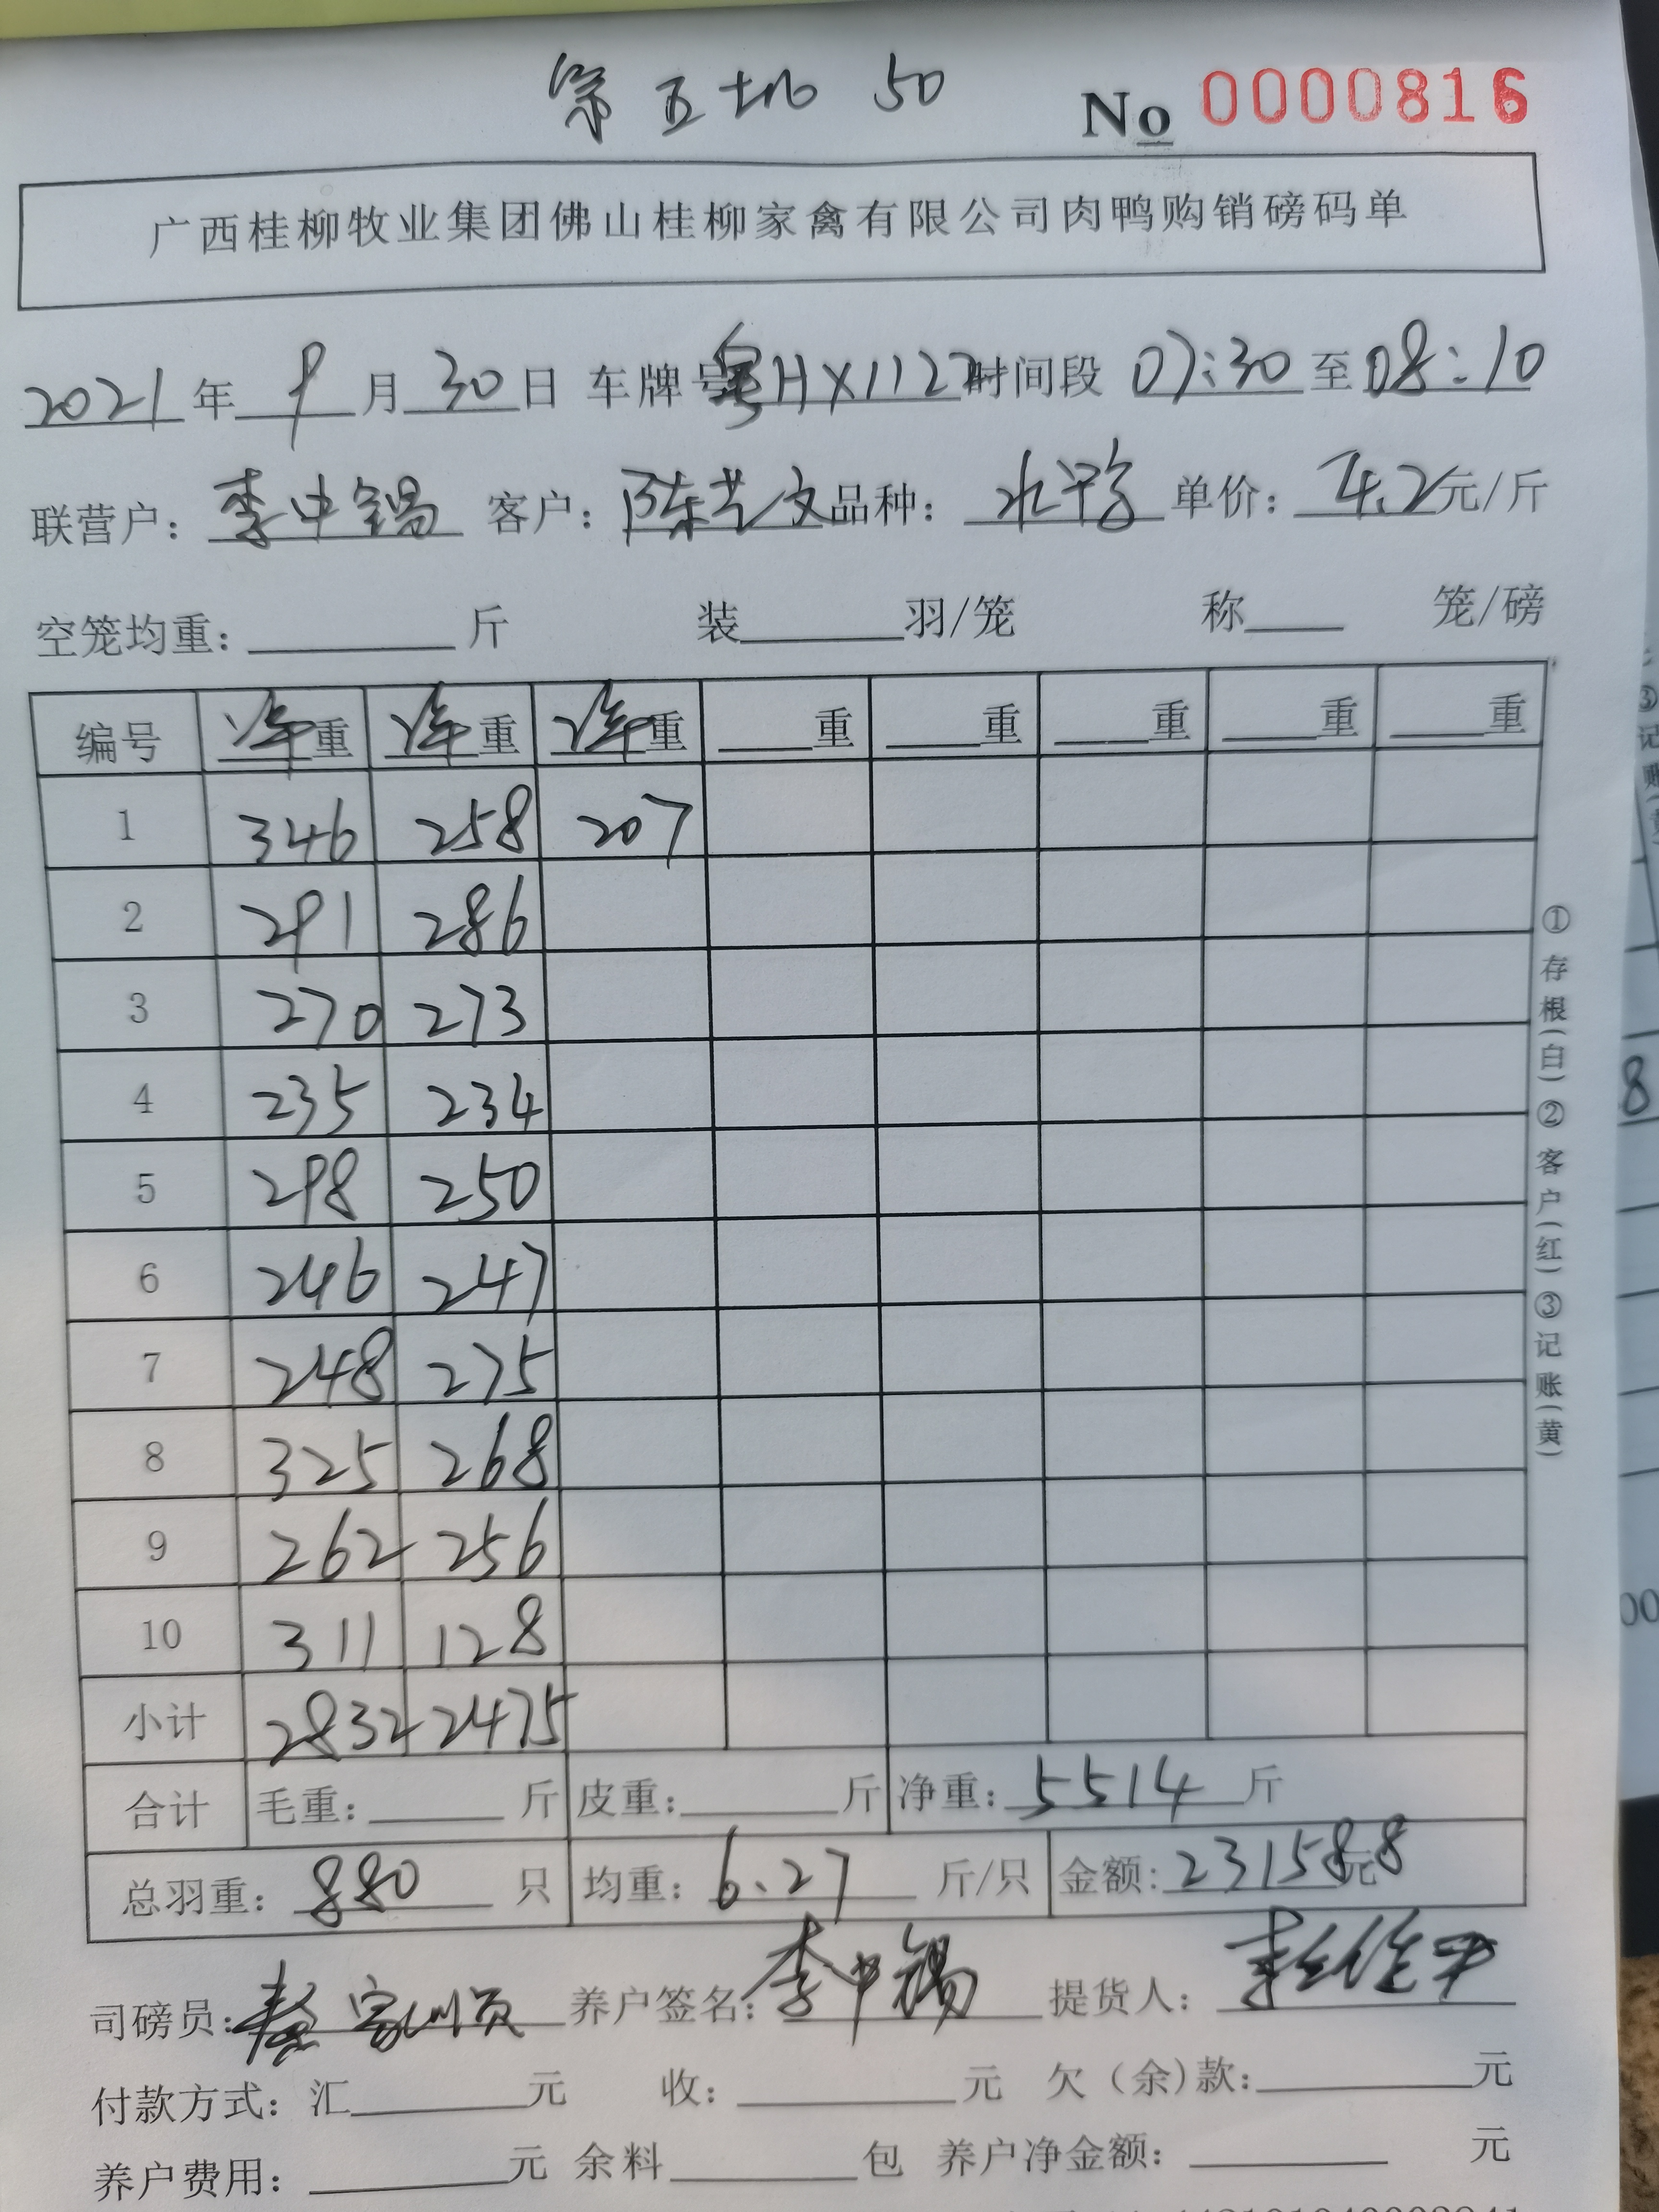 第五批 50 No 0000816
广西桂柳牧业集团佛山桂柳家禽有限公司肉鸭购销磅码单
2021年 9月 30日 车牌号粤HX1127时间段 07:30至08:10
联营户：李中锡 客户：陈艺文 品种：水鸭 单价：4.2元/斤
空笼均重： 斤 装 羽/笼 称 笼/磅
编号 净重 净重 净重 重 重 重 重 重
1 346 258 207
2 291 286
3 270 273
4 235 234
5 298 250
6 246 247
7 248 275
8 325 268
9 262 256
10 311 128
小计 2832 2475
合计 毛重： 斤 皮重： 斤 净重：5514斤
总羽重：880只 均重：6.27斤/只 金额：23158.8元
司磅员： 家顺 养户签名：李中锡 提货人：
付款方式：汇 元 收： 元 欠（余)款： 元
养户费用： 元 余料 包 养户净金额： 元
①存根(白)②客户(红)③记账(黄)